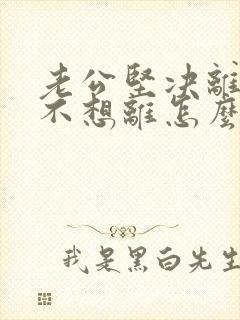 老公堅決離
不想離怎麼
我是黑白先生